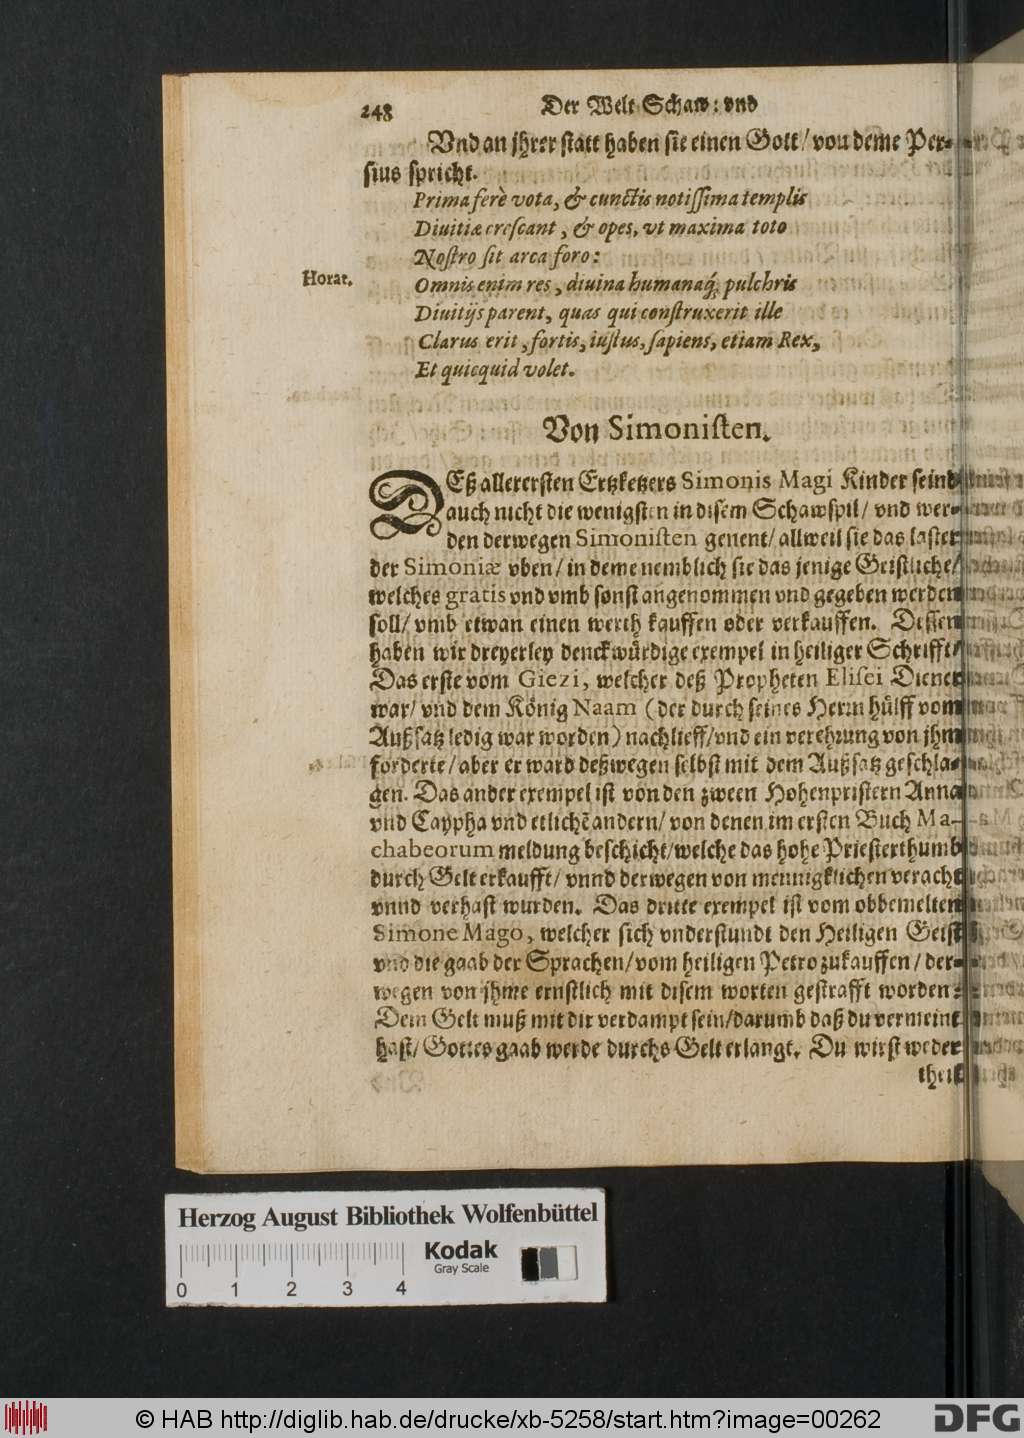 248 Der Welt Schaw: vnd
Vnd an jhrer statt haben sie einen Gott / von deme Per-
sius spricht.
Prima ferè vota, & cunctis notissima templis
Diuitiæ crescant, & opes, vt maxima toto
Nostro sit arca foro:
Horat.
Omnis enim res, diuina humanaq́; pulchris
Diuitijs parent, quas qui construxerit ille
Clarus erit, fortis, iustus, sapiens, etiam Rex,
Et quicquid volet.
Von Simonisten.
DEß allerersten Ertzketzers Simonis Magi Kinder seind
auch nicht die wenigsten in disem Schawspil / vnd wer-
den derwegen Simonisten genent / allweil sie das laster
der Simoniæ vben / in deme nemblich sie das jenige Geistliche /
welches gratis vnd vmb sonst angenommen vnd gegeben werden
soll / vmb etwan einen werth kauffen oder verkauffen. Dessen
haben wir dreyerley denckwürdige exempel in heiliger Schrifft /
Das erste vom Giezi, welcher deß Propheten Elisei Diener
war / vnd dem König Naam (der durch seines Herrn hülff vom
Außsatz ledig war worden) nachlieff / vnd ein verehrung von jhm
forderte / aber er ward deßwegen selbst mit dem Außsatz geschla-
gen. Das ander exempel ist von den zween Hohenpristern Anna
vnd Caypha vnd etlichē andern / von denen im ersten Buch Ma-
chabeorum meldung beschicht / welche das hohe Priesterthumb
durch Gelt erkaufft / vnnd derwegen von mennigklichen veracht
vnnd verhast wurden. Das dritte exempel ist vom obbemelten
Simone Mago, welcher sich vnderstundt den Heiligen Geist
vnd die gaab der Sprachen / vom heiligen Petro zukauffen / der-
wegen von jhme ernstlich mit disem worten gestrafft worden:
Dein Gelt muß mit dir verdampt sein / darumb daß du vermeint
hast / Gottes gaab werde durchs Gelt erlangt. Du wirst weder
theil
Herzog August Bibliothek Wolfenbüttel
Kodak
Gray Scale
0 1 2 3 4
© HAB http://diglib.hab.de/drucke/xb-5258/start.htm?image=00262
DFG